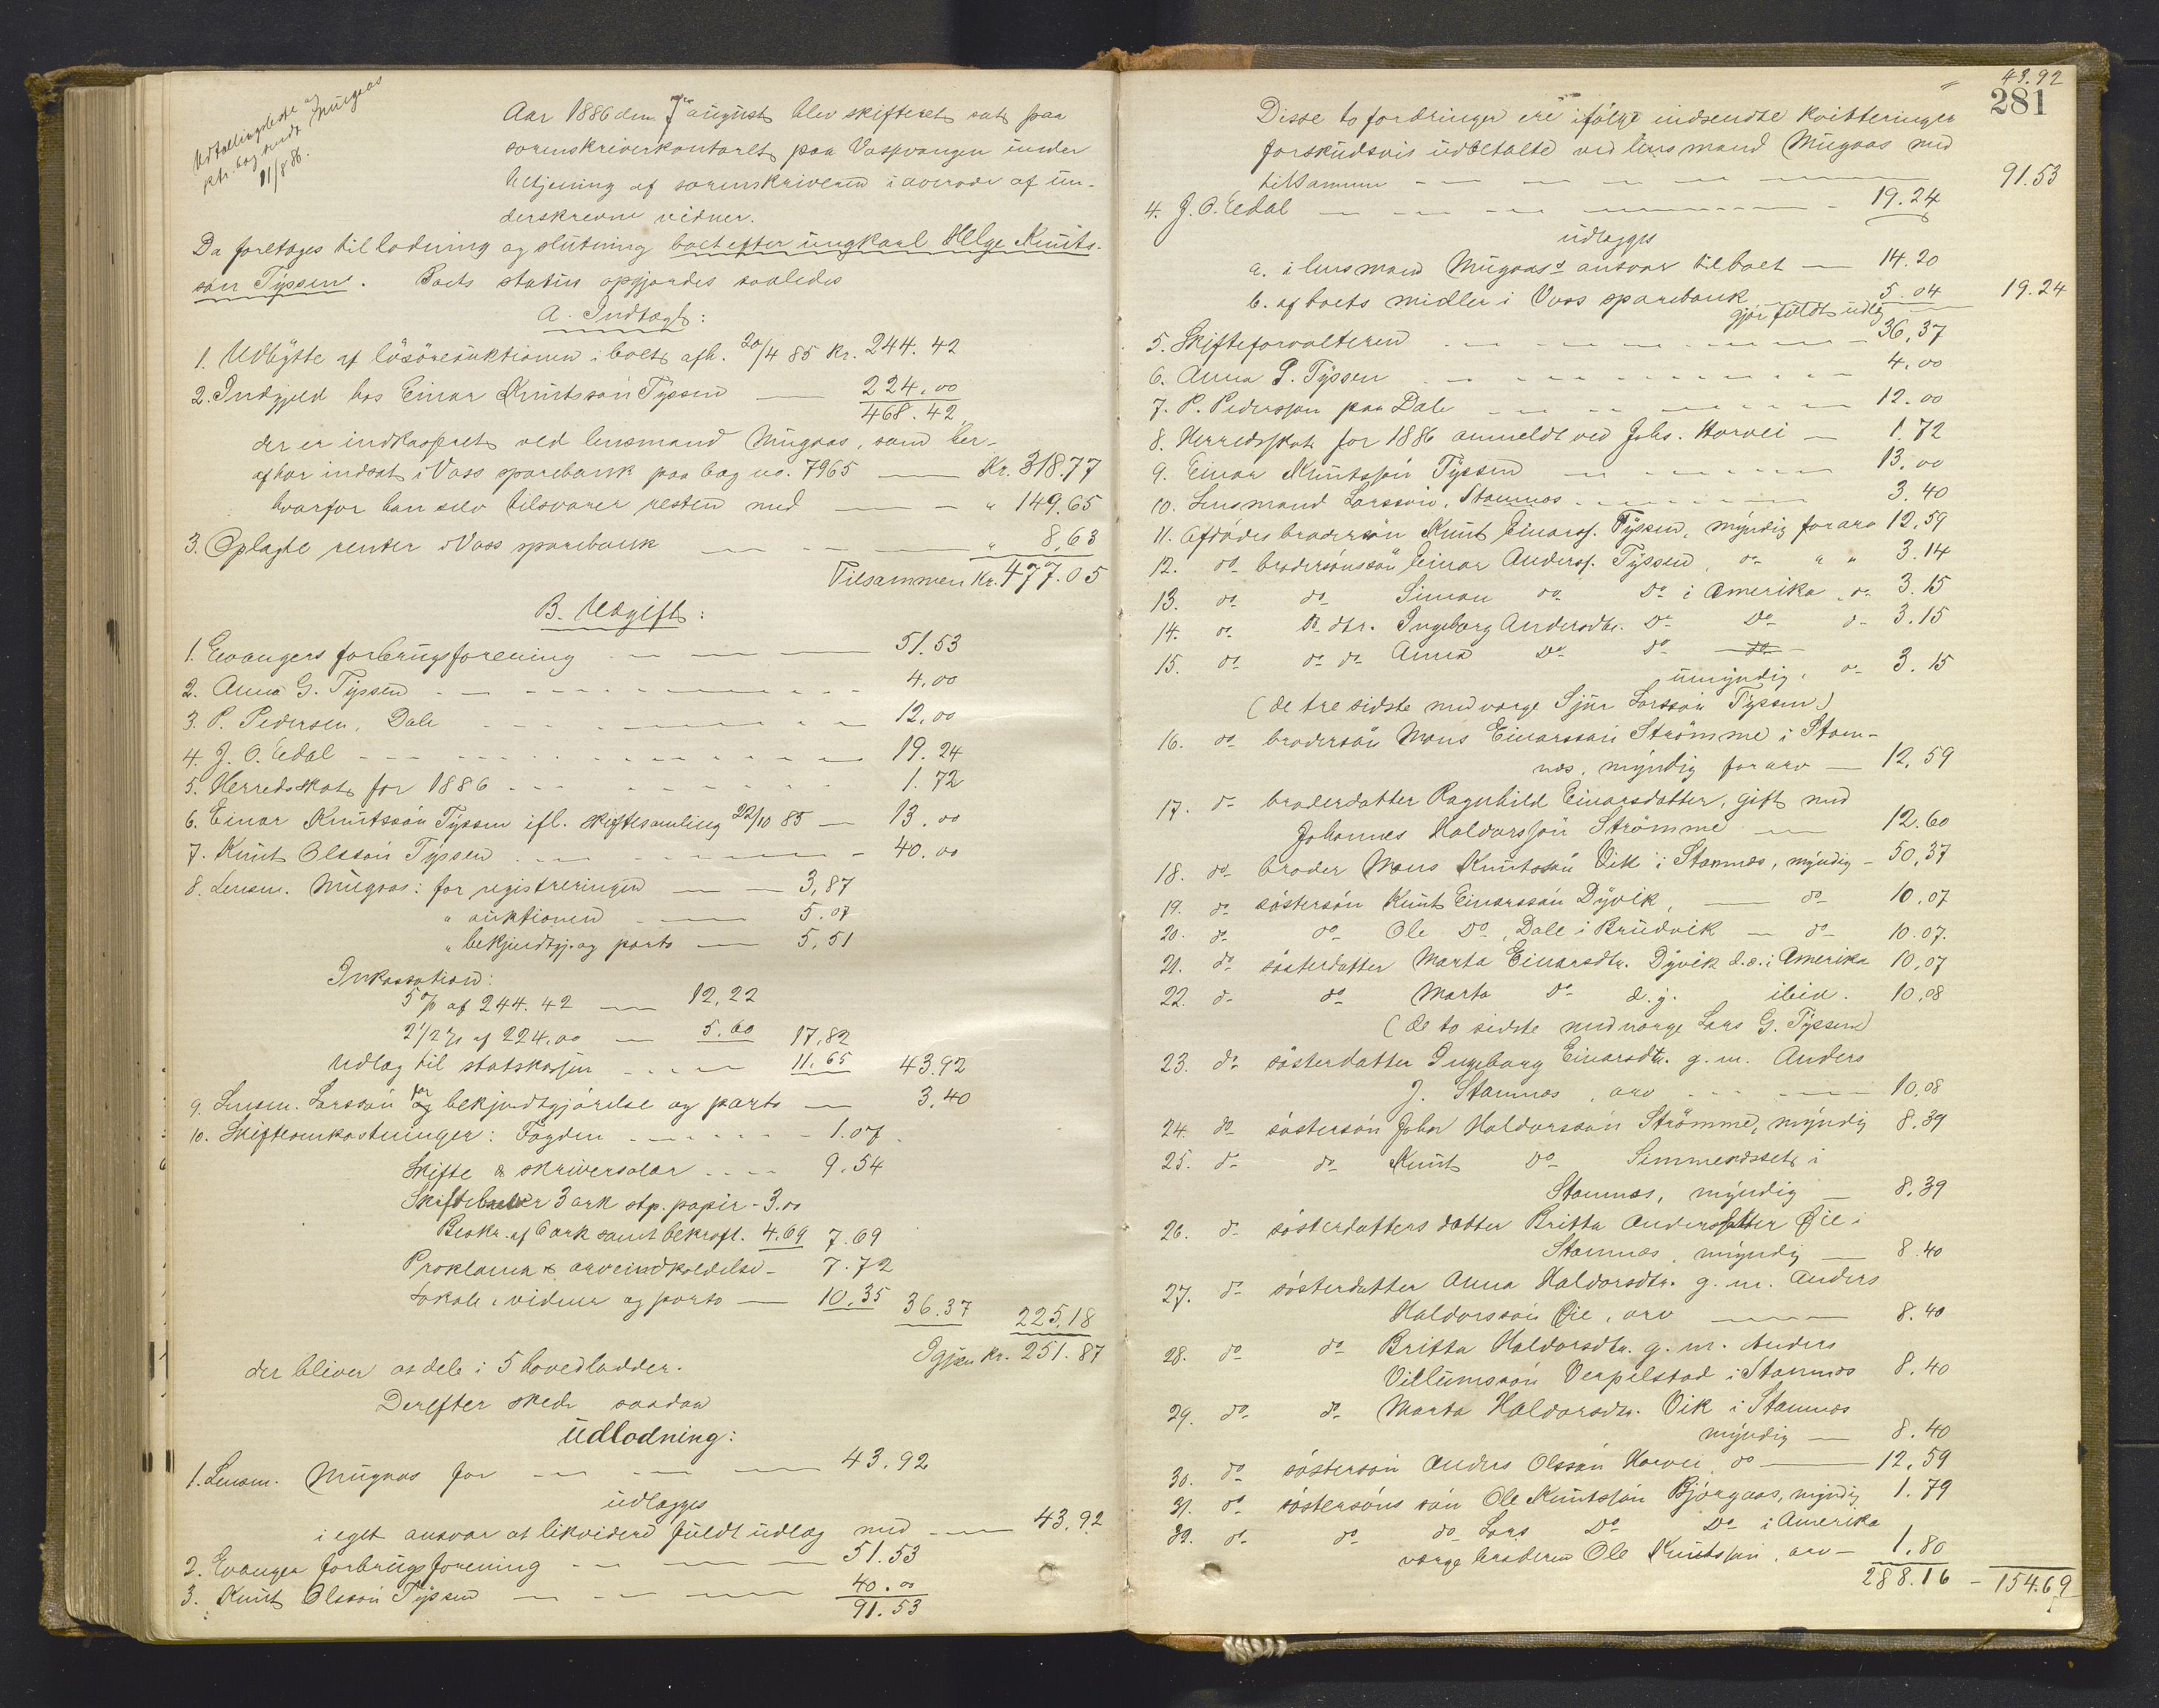 Udtællingsliste og
ktr. bog sendt Mugaas
11/8 86.
Aar 1886 den 7de august blev skifteret sat paa
sorenskriverkontoret paa Vossevangen under
betjening af sorenskriveren i overvær af un-
derskrevne vidner.
Da foretoges til lodning og slutning boet efter ungkarl Helge Knuts-
søn Tyssen. Boets status opgjordes saaledes
A. Indtægt:
1. Udbytte af løsøreauktionen i boet afh. 20/4 85 Kr. 244.42
2. Indgjæld hos Einar Knutssøn Tyssen — 224.00
468.42
der er indkasseret ved lensmand Mugaas, som her-
af har indsat i Voss sparebank paa bog no. 7965 — Kr. 318.77
hvorfor han selv tilsvarer resten med — " 149.65
3. Oplagte renter i Voss sparebank — " 8,63
Tilsammen Kr. 477.05
B. Udgift:
1. Evangers forbrugsforening — 51.53
2. Anna G. Tyssen — 4.00
3. P. Pedersen, Dale — 12.00
4. J. O. Eedal — 19.24
5. Herredsskat for 1886 — 1.72
6. Einar Knutssøn Tyssen ifl. skiftesamling 22/10 85 — 13.00
7. Knut Olssøn Tyssen — 40.00
8. Lensm. Mugaas: for registreringen — 3,87
" auktionen — 5.07
" bekjendtgj. og porto — 5,51
Inkassation:
5 % af 244.42 — 12,22
2 1/2 % af 224.00 — 5.60 17,82
Udlæg til statskassen — 11.65 43.92
9. Lensm. Larssøn for bekjendtgjørelse og porto — 3,40
10. Skifteomkostninger: Fogden — 1.07
Skifte & skriversalær — 9.54
Skiftebrev 3 ark stp. papir - 3.00
Beskr. af 6 ark samt bekræft. 4.69 7.69
Proklama & arveindkaldelse - 7.72
Lokale, vidner og porto — 10,35 36.37 225.18
Igjen Kr. 251.87
der bliver at dele i 5 hovedlodder.
Derefter skede saadan
Udlodning:
1. Lensm. Mugaas for — 43.92
udlægges
i eget ansvar at likvidere fuldt udlæg med — 43.92
2. Evanger forbrugsforening — 51.53
3. Knut Olssøn Tyssen — 40.00
91.53
43.92
281
Disse to fordringer ere ifølge indsendte kvitteringer
forskudsvis udbetalte ved lensmand Mugaas med
tilsammen — 91.53
4. J. O. Eedal — 19.24
udlægges
a. i lensmand Mugaas's ansvar til boet — 14.20
b. af boets midler i Voss sparebank 5.04 19.24
gjør fuldt udlæg
5. Skifteforvalteren — 36,37
6. Anna G. Tyssen — 4.00
7. P. Pederssen paa Dale — 12.00
8. Herredsskat for 1886 anmeldt ved Johs. Horvei — 1.72
9. Einar Knutssøn Tyssen — 13.00
10. Lensmand Larssøn, Stamnes — 3.40
11. Afdødes brodersøn Knut Einarss. Tyssen, myndig for arv 12,59
12. do brodersønssøn Einar Anderss. Tyssen, do " " 3.14
13. do do Simon do do i Amerika, do 3.15
14. do do dtr. Ingeborg Andersdtr. do do do 3.15
15. do do do Anna do do
umyndig, do 3.15
(de tre sidste med værge Sjur Larssøn Tyssen)
16. do brodersøn Mons Einarssøn Strømme i Stam-
næs, myndig for arv — 12,59
17. do broderdatter Ragnhild Einarsdatter, gift med
Johannes Haldorssøn Strømme — 12.60
18. do broder Mons Knutssøn Vik i Stamnæs, myndig - 50,37
19. do søstersøn Knut Einarssøn Dyvik, — do 10.07
20. do do Ole do, Dale i Bruvik — do 10.07.
21. do søsterdatter Marta Einarsdtr. Dyvik d.æ. i Amerika 10,07
22. do do Marta do d.y. ibid. 10,08
(de to sidste med værge Lars G. Tyssen)
23. do søsterdatter Ingeborg Einarsdtr. g. m. Anders
J. Stamnæs, arv — 10,08
24. do søstersøn John Haldorssøn Strømme, myndig 8,39
25. do do Knut do Simmenæsset i
Stamnæs, myndig — 8,39
26. do søsterdatters datter Britta Andersdatter Øie i
Stamnæs, myndig — 8.40
27. do søsterdatter Anna Haldorsdtr. g. m. Anders
Haldorssøn Øie, arv — 8.40
28. do do Britta Haldorsdtr. g. m. Anders
Villumssøn Verpelstad i Stamnæs 8.40
29. do do Marta Haldorsdtr. Vik i Stamnæs
myndig — 8.40
30. do søstersøn Anders Olssøn Horvei do — 12,59
31. do søstersøns søn Ole Knutssøn Bjørgaas, myndig 1.79
32. do do do Lars do do i Amerika
værge broderen Ole Knutssøn, arv — 1.80
288.16 - 154.69